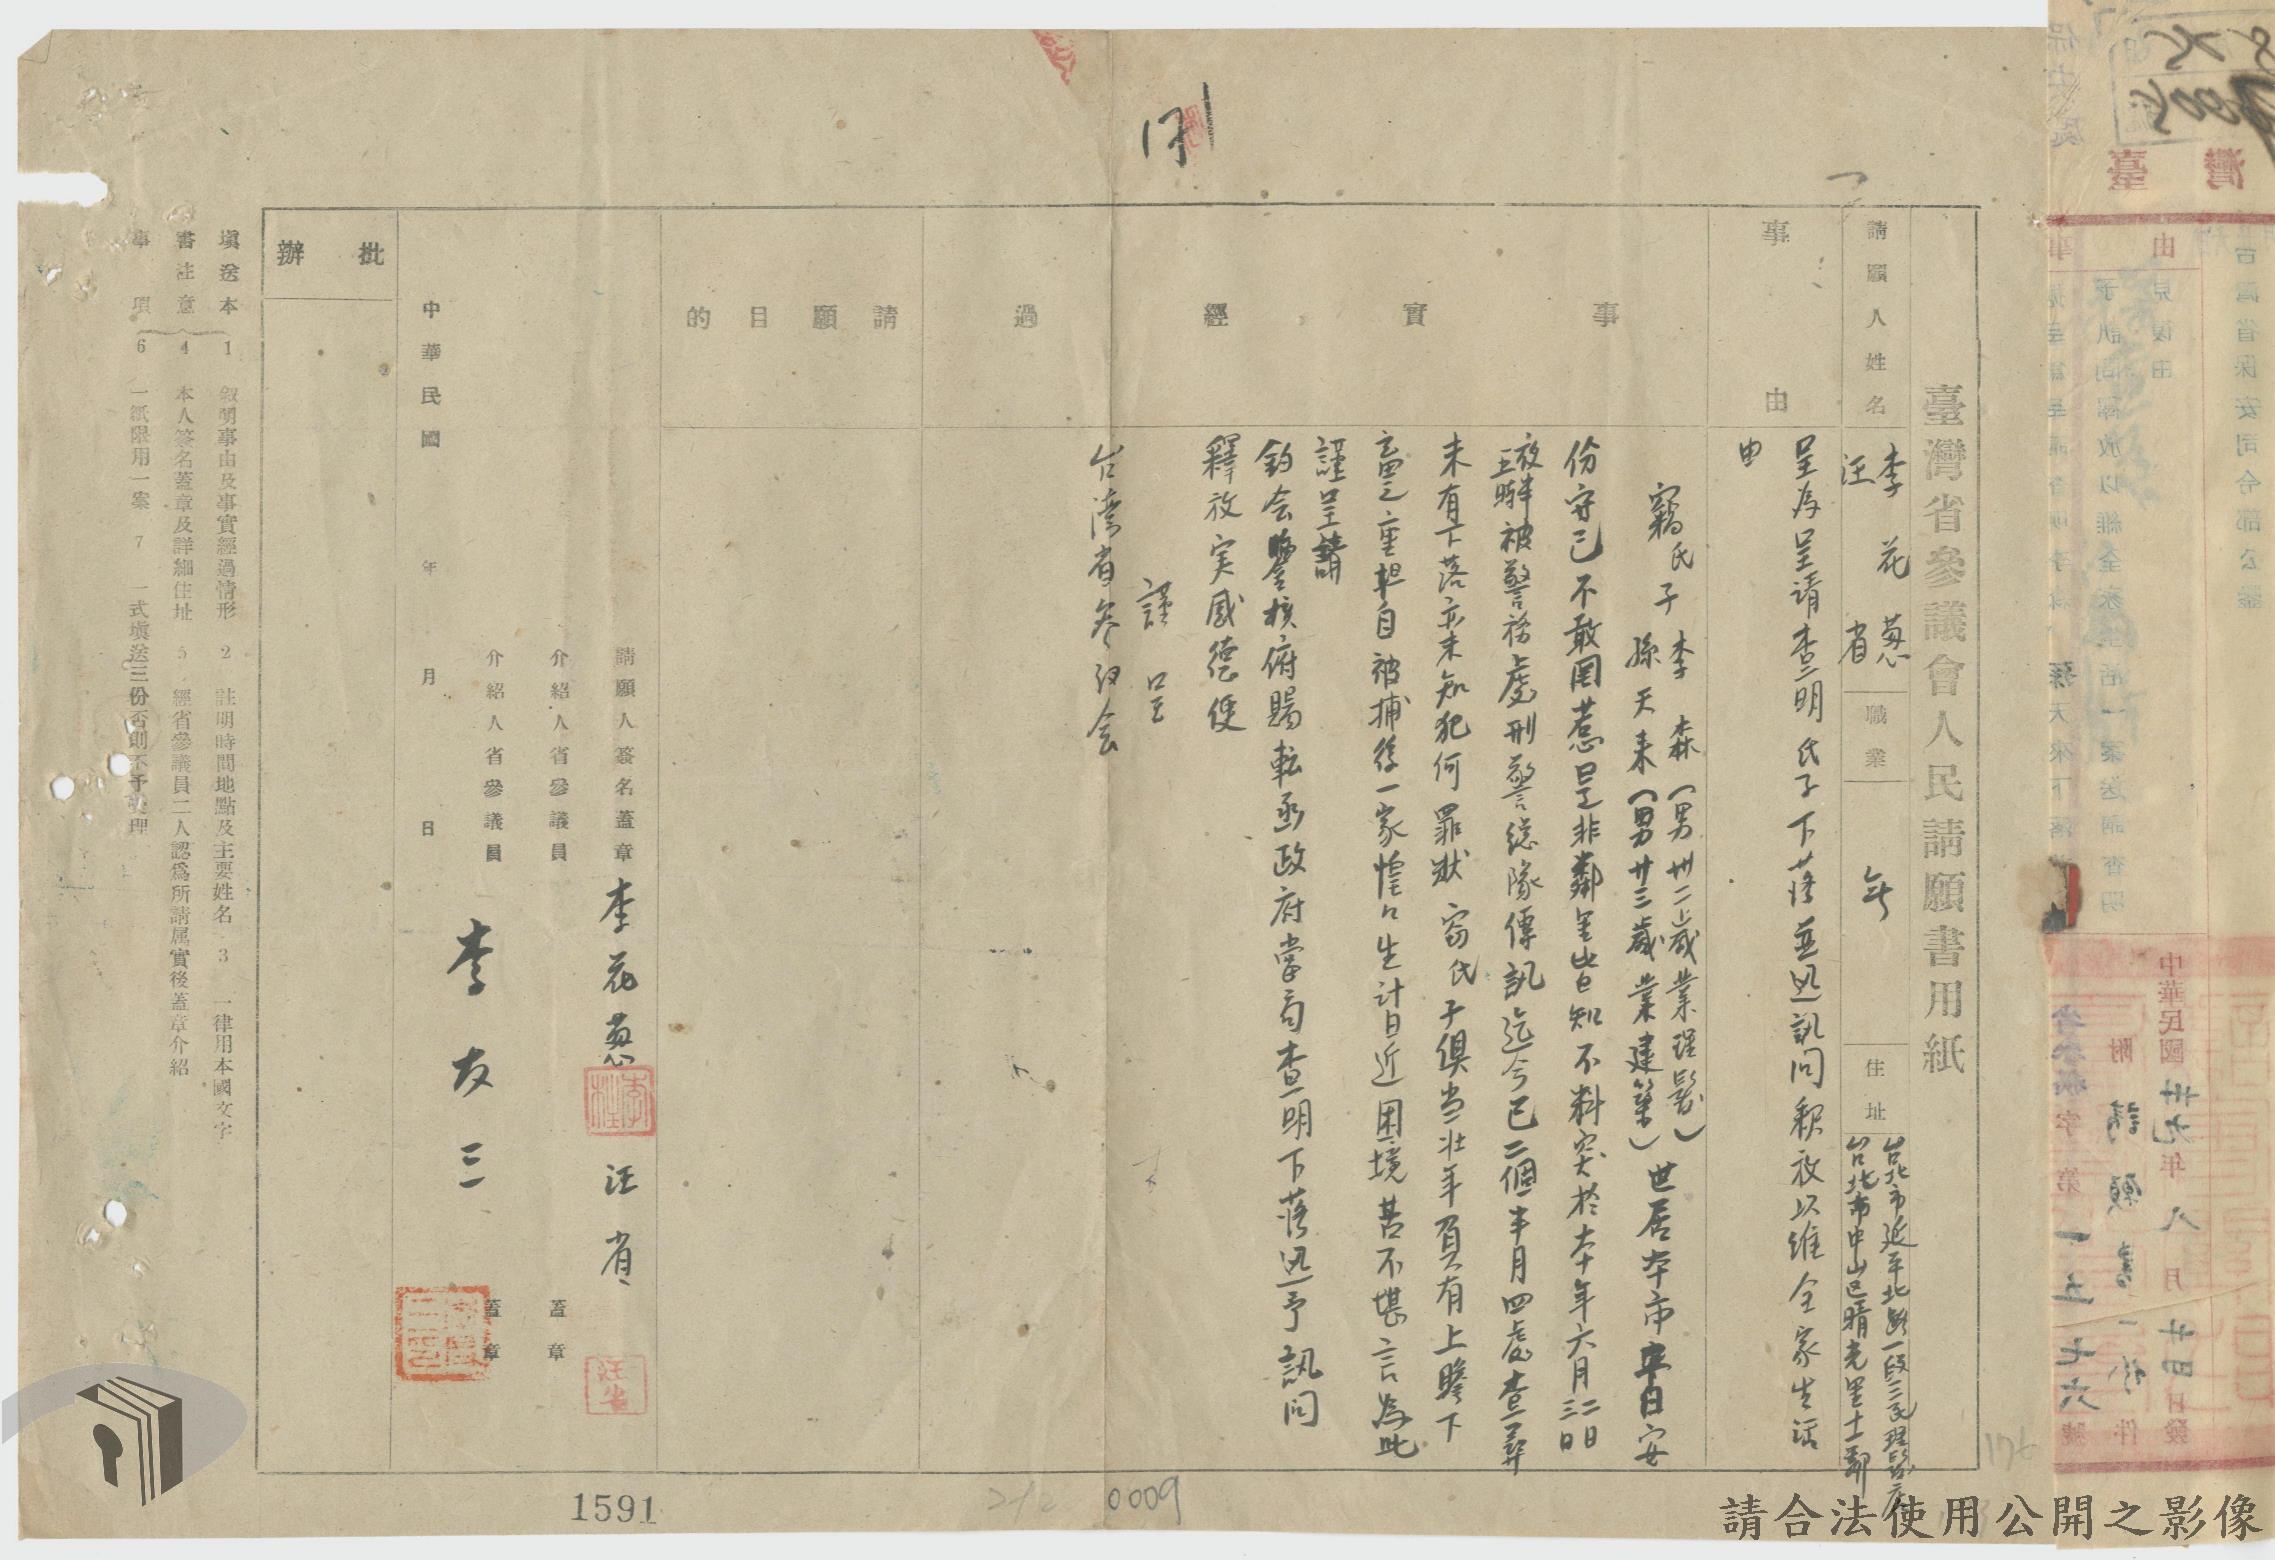 臺灣省參議會人民請願書用紙
請願人姓名
李花葱
汪省
職業
無
住址
台北市延平北路一段三民理髮店
台北市中山區晴光里十二鄰
事由
呈為呈請查明氏子下落並迅訊問釈放以維全家生活
由
事實經過
竊氏子 李森(男卅二歲業理髮)
孫天來(男廿三歲業建築)
世居本市 安
份守己不敢因惹是非鄰里皆知不料突於本年六月
二日
三日
被警務處刑警總隊傳訊迄今已二個半月四處查尋
未有下落亦未知犯何罪狀竊氏子俱当壮年負有上瞻下
畜之重担自被捕後一家惶々生計日近困境苦不堪言為此
謹呈請
鈞会鑒核俯賜転函政府当局查明下落迅予訊問
釋放実感德便
謹呈
台湾省参议会
請願目的
請願人簽名蓋章 李花葱 汪省
汪省
介紹人省參議員 蓋章
介紹人省參議員 李友三 蓋章
中華民國 年 月 日
批辦
填送本
書注意
事項
1 敘明事由及事實經過情形 2 註明時間地點及主要姓名 3 一律用本國文字
4 本人簽名蓋章及詳細住址 5 經省參議員二人認爲所請属實後蓋章介紹
6 一紙限用一案 7 一式填送三份否則不予受理
1591
0009
176
請合法使用公開之影像